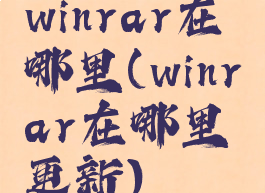 winrar在
哪里(winr
ar在哪里
更新)